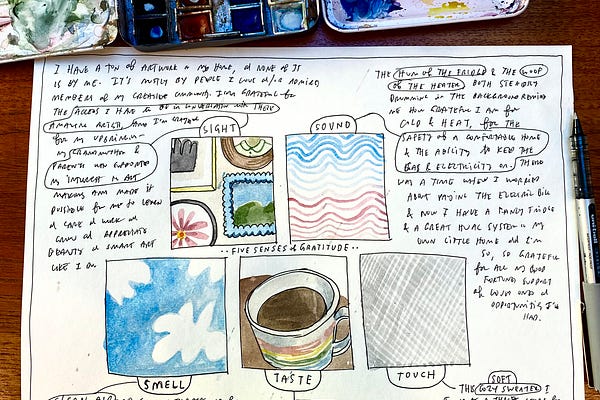 I HAVE A TON OF ARTWORK IN MY HOME, & NONE OF IT
IS BY ME. IT'S MOSTLY BY PEOPLE I LOVE &/OR ADMIRED
MEMBERS OF MY CREATIVE COMMUNITY. I'M GRATEFUL FOR
THE ACCESS I HAVE TO BE IN CONVERSATION WITH THESE
AMAZING ARTISTS, AND I'M GRATEFUL
FOR MY UPBRINGING
MY GRANDMOTHER &
PARENTS WHO SUPPORTED
MY INTEREST IN ART
MAKING AND MADE IT
POSSIBLE FOR ME TO LEARN
BEAUTY & SMART ART
LIKE I DO.
SIGHT
SOUND
THE HUM OF THE FRIDGE & THE WOOF
OF THE HEATER BOTH STEADY
DRUMMING IN THE BACKGROUND REMIND
ME HOW GRATEFUL I AM FOR
COLD & HEAT, FOR THE
SAFETY OF A COMFORTABLE HOME
& THE ABILITY TO KEEP THE
GAS & ELECTRICITY ON. THERE
WAS A TIME WHEN I WORRIED
ABOUT PAYING THE ELECTRIC BILL
& NOW I HAVE A FANCY FRIDGE
& A GREAT HVAC SYSTEM IN MY
OWN LITTLE HOME AND I'M
SO, SO GRATEFUL
FOR ALL MY GOOD
FORTUNE, SUPPORT
OF LOVED ONES &
OPPORTUNITIES I'VE
HAD.
··FIVE SENSES of GRATITUDE··
SMELL
TASTE
TOUCH
CLEAN AIR
SOFT
THE COZY SWEATER I